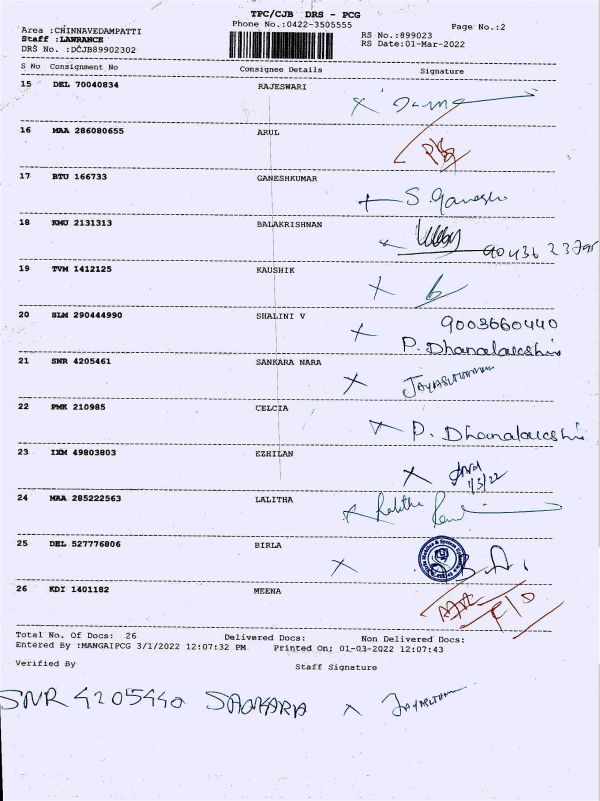 TPC/CJB DRS - PCG
Area :CHINNAVEDAMPATTI Phone No.:0422-3505555 Page No.:2
Staff :LAWRANCE RS No.:899023
DRS No. :DCJB89902302 RS Date:01-Mar-2022
S No Consignment No Consignee Details Signature
15 DEL 70040834 RAJESWARI
16 MAA 286080655 ARUL
17 BTU 166733 GANESHKUMAR
S. Ganesh
18 KMU 2131313 BALAKRISHNAN
19 TVM 1412125 KAUSHIK
20 SLM 290444990 SHALINI V
9003660440
P. Dhanalakshmi
21 SNR 4205461 SANKARA NARA
22 PMK 210985 CELCIA
P. Dhanalakshmi
23 IXM 49803803 EZHILAN
1/3/22
24 MAA 285222563 LALITHA
Lalitha
25 DEL 527776806 BIRLA
26 KDI 1401182 MEENA
Total No. Of Docs: 26 Delivered Docs: Non Delivered Docs:
Entered By :MANGAIPCG 3/1/2022 12:07:32 PM Printed On: 01-03-2022 12:07:43
Verified By Staff Signature
SNR 4205440 SANKARA X